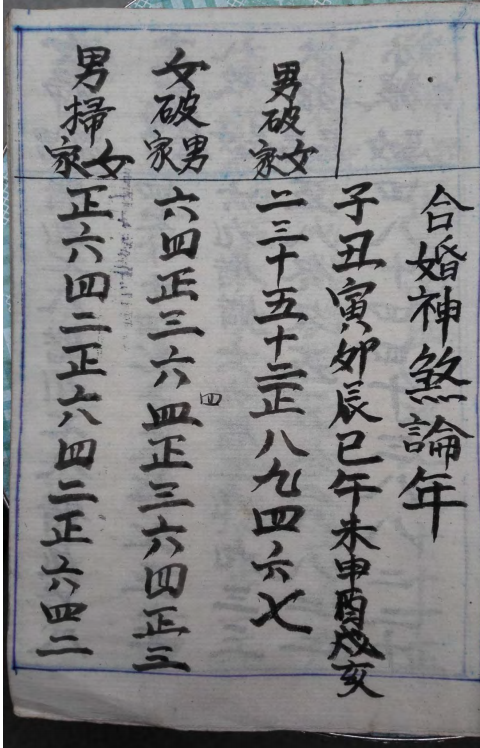 合婚神煞論年
子丑寅卯辰巳午未申酉戌亥
男破女家
二三十五十二正八九四六七
女破男家
六四正三六四正三六四正三
四
男掃女家
正六四二正六四二正六四二